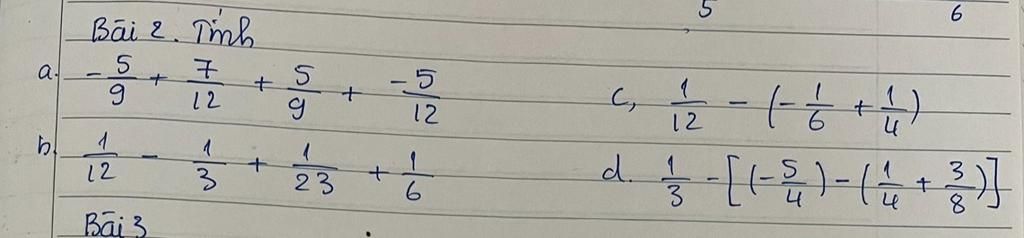 5 6
Bài 2. Tính
a. -5/9 + 7/12 + 5/9 + -5/12
c, 1/12 - (-1/6 + 1/4)
b. 1/12 - 1/3 + 1/23 + 1/6
d. 1/3 - [(-5/4) - (1/4 + 3/8)]
Bài 3